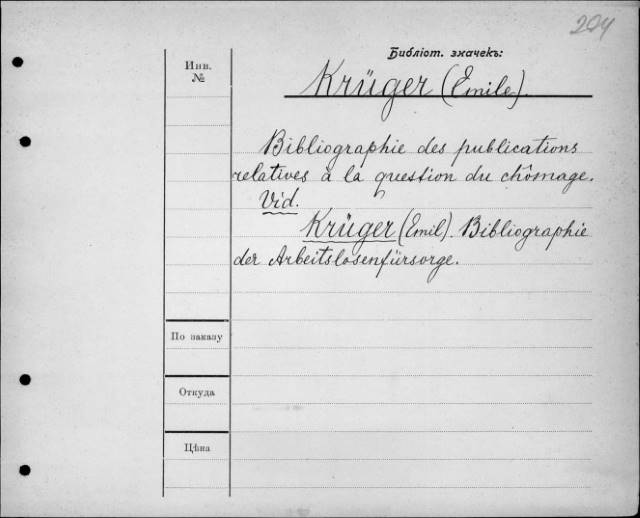 204
Библіот. значекъ:
Инв.
№
Krüger (Emile).
Bibliographie des publications
relatives à la question du chômage.
Vid.
Krüger (Emil). Bibliographie
der Arbeitslosenfürsorge.
По заказу
Откуда
Цѣна